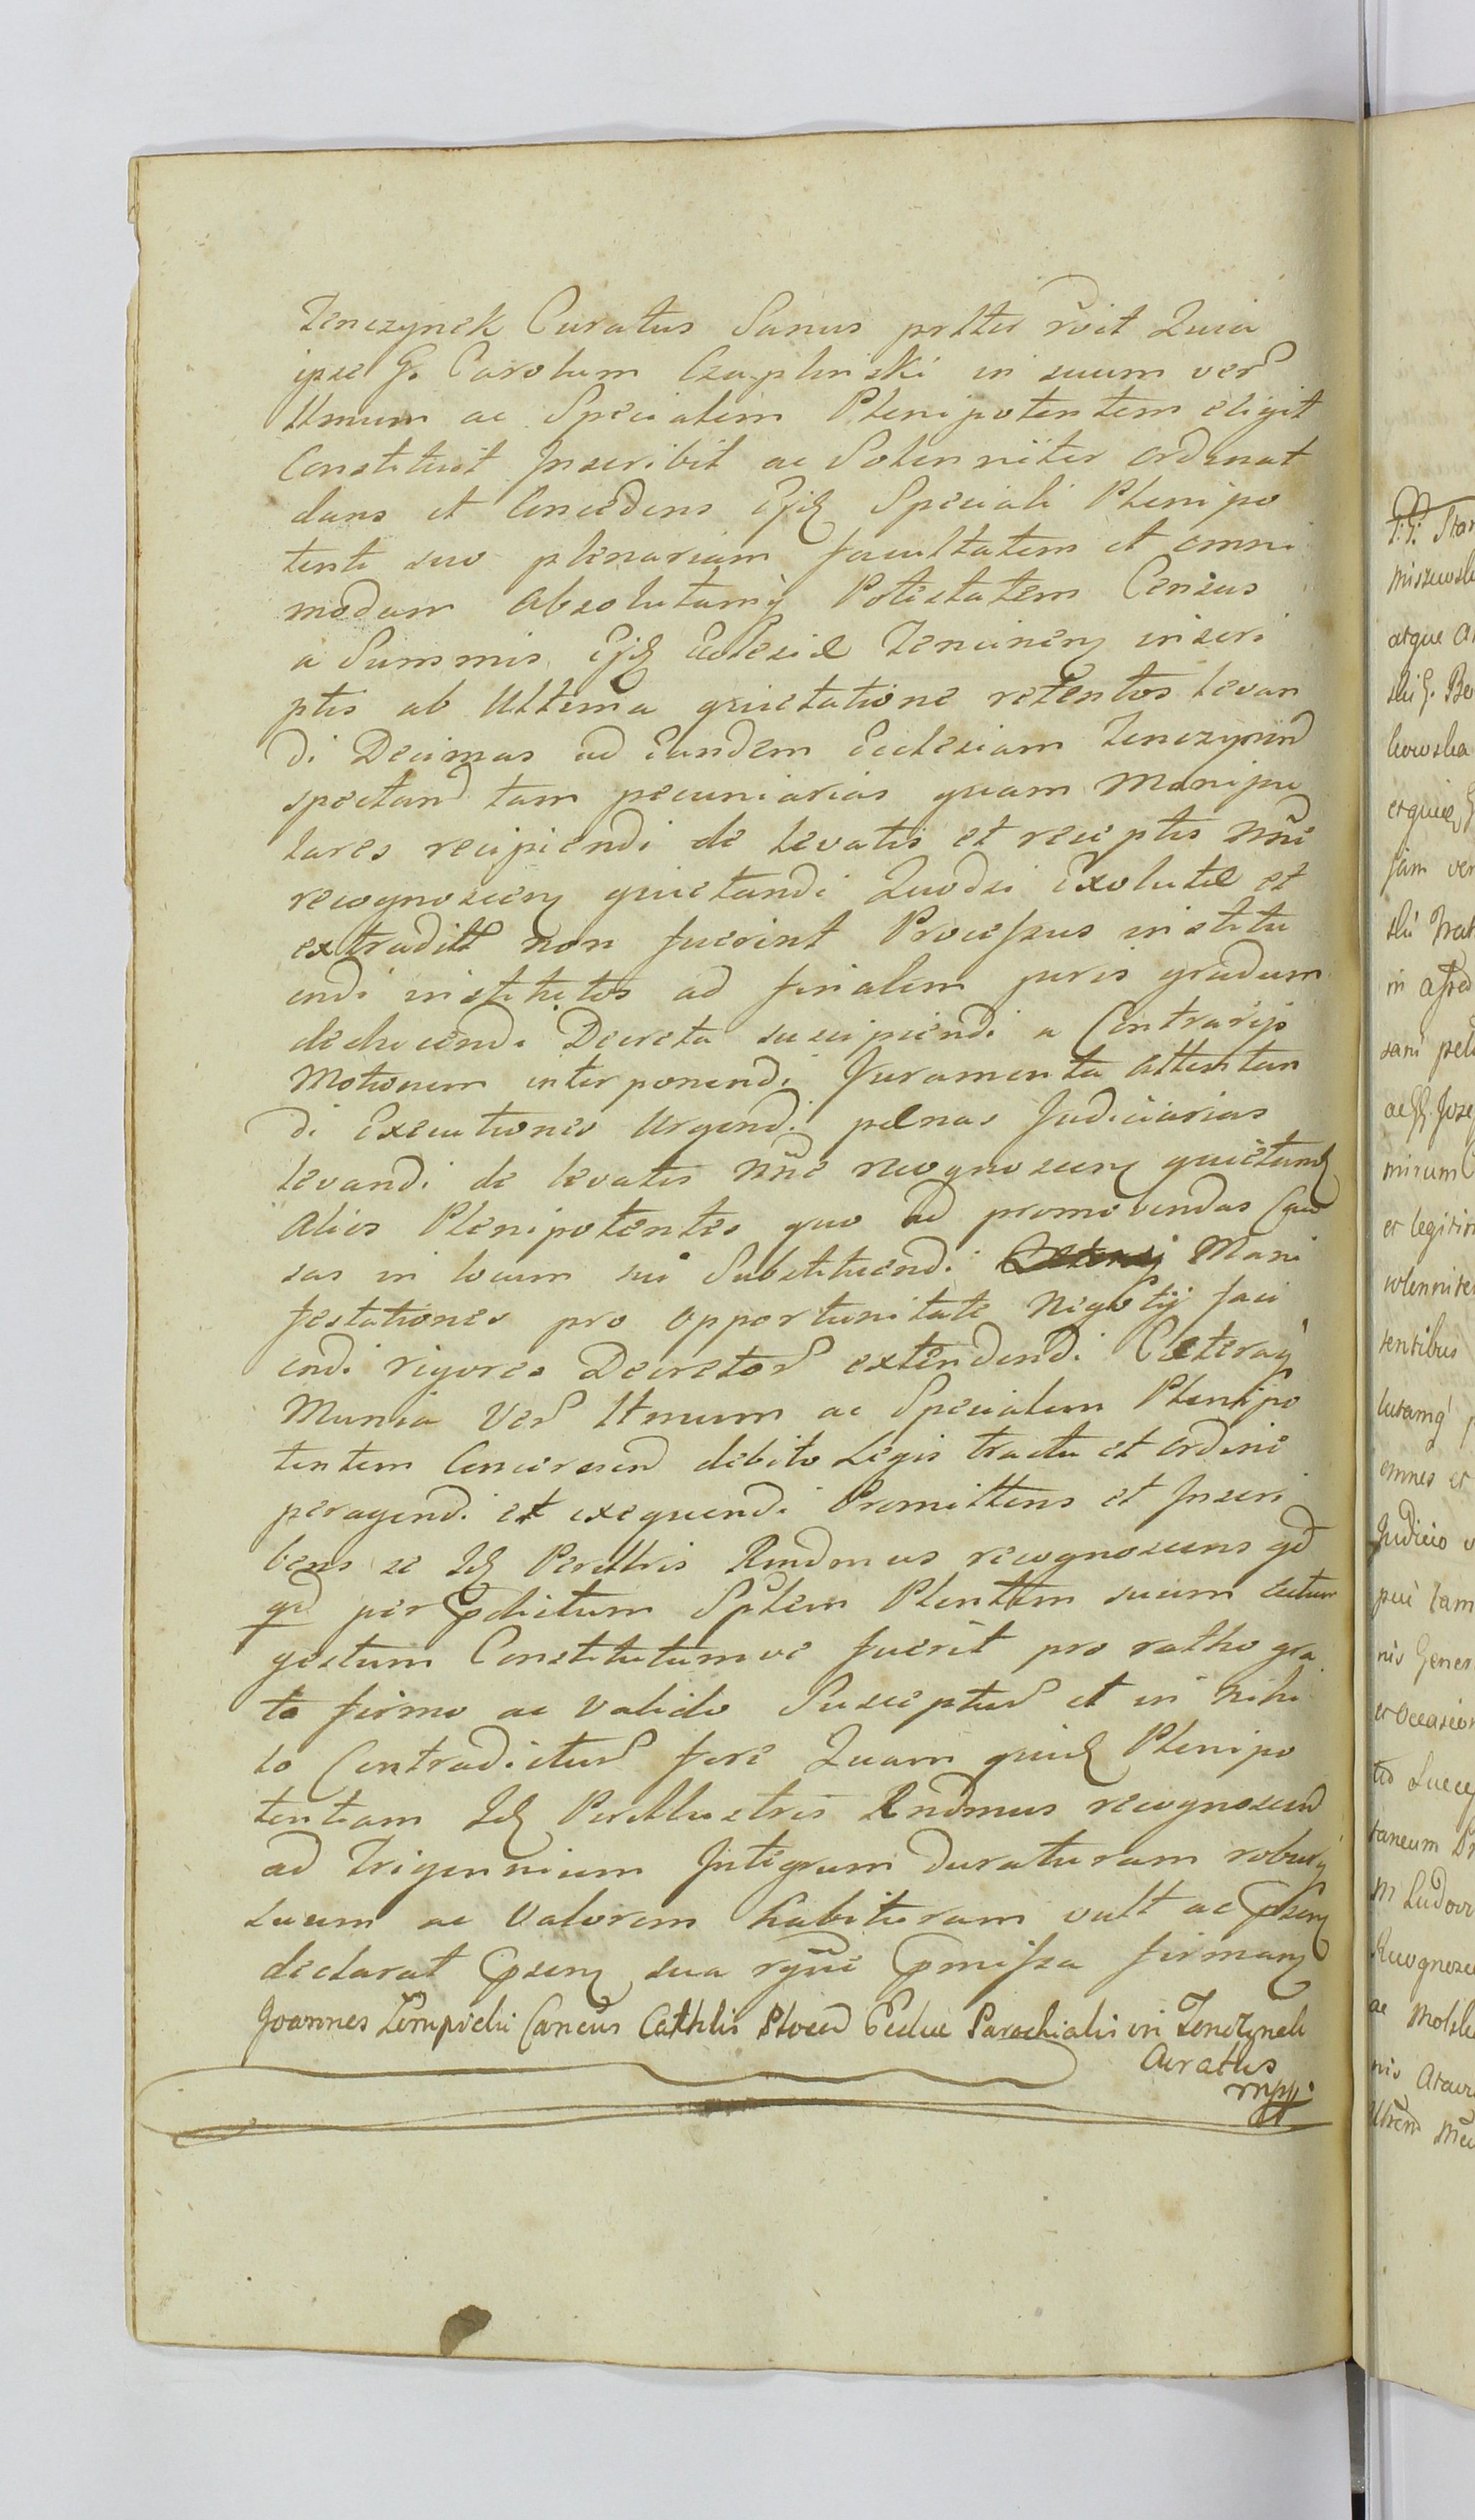 Tenczynek Curatus Sanus pbtter roit Quia
ipse G. Carolum Czaplinski in suum ver
Itmum ac Specialem Plenipotentem eligit
Constituit Inscribit ac Solenniter ordinat
dans et Concedens Ejd Speciali Plenipo
tenti suo plenariam facultatem et omni
modam absolutamq Potestatem Census
a Summis Ejd Eclesiæ Tencinen inscri
ptis ab Ultima quietatione retentos levan
di Decimas ad Eandem Ecclesiam Tenczynen
spectand tam pecuniarias quam Manipu
lares recipiendi de levatis et receptis nñe
recognoscen quietandi Quodsi Exolutæ et
extradit non fuerint Processus institu
endi institutos ad finalem juris gradum
deducendi Decreta suscipiendi a Contrarijs
Motionem interponendi Juramenta attentan
di Executiones Urgendi pænas Judiciarias
levandi de levatis nñe recognoscen quietand
alios Plenipotentes quo ad promovendas Cau
sas in locum sui Substituendi Mani
festationes pro opportunitate Negotij faci
endi rigores Decretor extendendi Cæteraq
Munia Ver Itmum ac Specialem Plenipo
tentem Concernen debito Legis tractu et ordine
peragendi et exequendi Promittens et Inscri
bens se Id Perillris Rndmus recognoscens qd
qd per pdictum Splem Plenttem suum actum
gestum Constitutumve fuerit pro ratho gra
to firmo ac valido Suscepturu et in nihi
lo Contradictur fore Quam quid Plenipo
tentiam Id Perillustris Rndmus recognoscen
ad Trigennium Integrum duraturam roburq
suum ac valorem habituram vult ac psen
declarat psen sua rgñe pmissa firman
Joannes Lempicki Cancus Cathlis Plocen Ecclæ Parochialis in Tenczynek
Curatus
mppr
P.P. Stan
Miszewsk
atque
ski G. Be
kowska
jam ver
ski
in
sani
ac GG. Joze
mirum
et legitim
solennite
tentibus
lutamq
omnes et
Judicio
pui tam
nis Gener
et occasion
taneum
M Ludovi
Recognosce
ac Molsk
nis